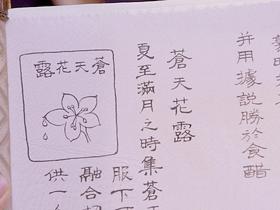 并用據說勝於食醋
蒼天花露
夏至滿月之時集蒼
服下
融合
供一
蒼天花露